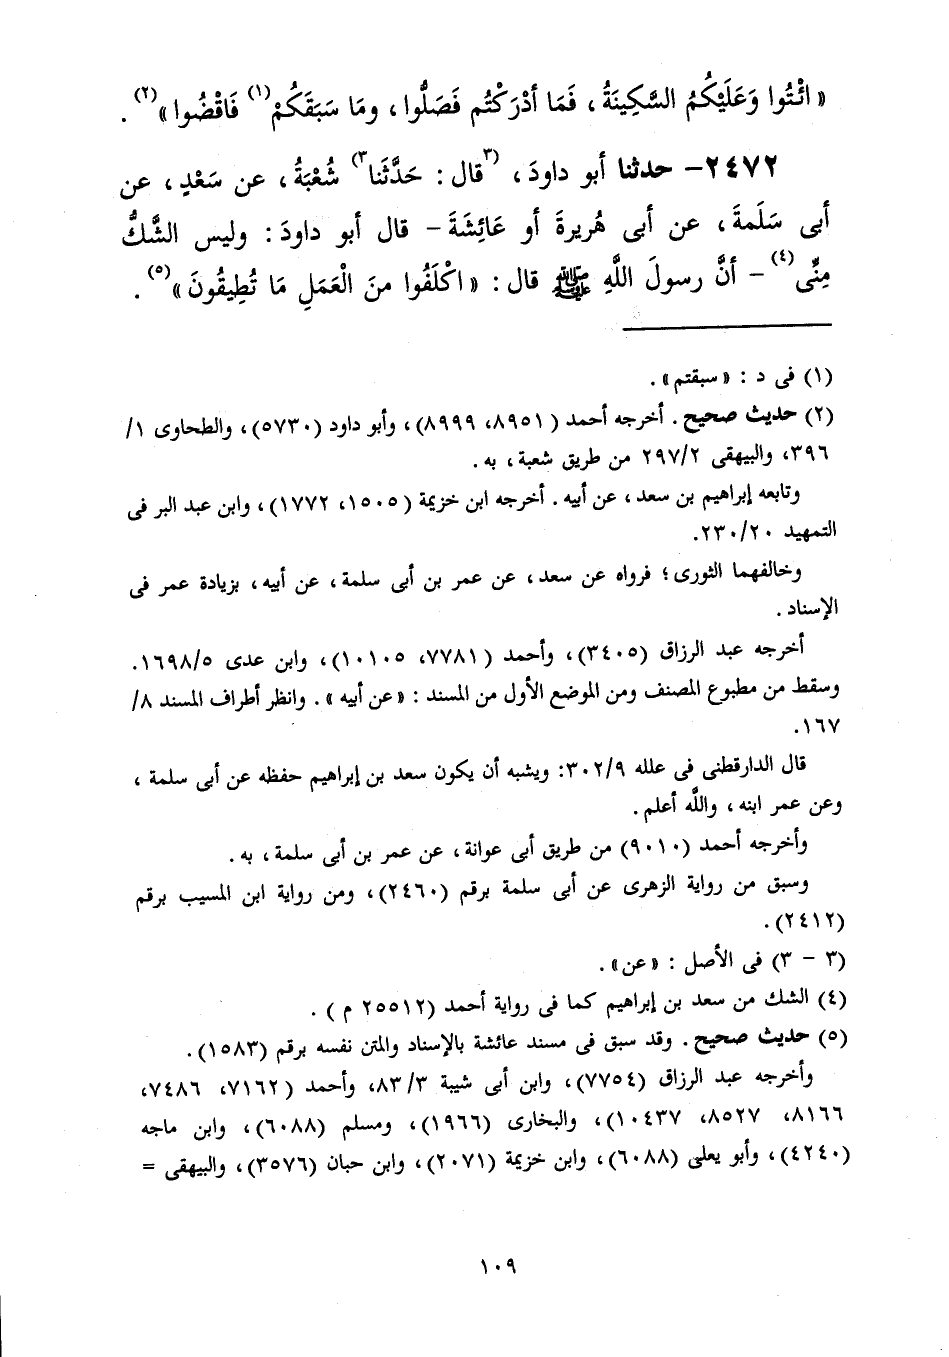 « ائْتُوا وَعَلَيْكُمُ السَّكِينَةُ ، فَمَا أدْرَكْتُم فَصَلُّوا ، ومَا سَبَقَكُمْ (١) فَاقْضُوا » (٢) .
٢٤٧٢- حدثنا أبو داودَ ، (٣ قال : حَدَّثَنا ٣) شُعْبَةُ ، عن سَعْدٍ ، عن
أبى سَلَمةَ ، عن أبى هُريرةَ أو عَائِشَةَ - قال أبو داودَ : وليس الشَّكُّ
مِنِّى (٤) - أنَّ رسولَ اللَّهِ ﷺ قال : « اكْلَفُوا منَ الْعَمَلِ مَا تُطِيقُونَ » (٥) .
(١) فى د : « سبقتم » .
(٢) حديث صحيح . أخرجه أحمد (٨٩٥١، ٨٩٩٩) ، وأبو داود (٥٧٣٠) ، والطحاوى ١/
٣٩٦، والبيهقى ٢٩٧/٢ من طريق شعبة ، به .
وتابعه إبراهيم بن سعد ، عن أبيه . أخرجه ابن خزيمة (١٥٠٥، ١٧٧٢) ، وابن عبد البر فى
التمهيد ٢٣٠/٢٠.
وخالفهما الثورى ؛ فرواه عن سعد ، عن عمر بن أبى سلمة ، عن أبيه ، بزيادة عمر فى
الإسناد .
أخرجه عبد الرزاق (٣٤٠٥) ، وأحمد (٧٧٨١، ١٠١٠٥) ، وابن عدى ١٦٩٨/٥.
وسقط من مطبوع المصنف ومن الموضع الأول من المسند : « عن أبيه » . وانظر أطراف المسند ٨/
١٦٧.
قال الدارقطنى فى علله ٣٠٢/٩: ويشبه أن يكون سعد بن إبراهيم حفظه عن أبى سلمة ،
وعن عمر ابنه ، واللَّه أعلم .
وأخرجه أحمد (٩٠١٠) من طريق أبى عوانة ، عن عمر بن أبى سلمة ، به .
وسبق من رواية الزهرى عن أبى سلمة برقم (٢٤٦٠) ، ومن رواية ابن المسيب برقم
(٢٤١٢) .
(٣ - ٣) فى الأصل : « عن » .
(٤) الشك من سعد بن إبراهيم كما فى رواية أحمد (٢٥٥١٢ م) .
(٥) حديث صحيح . وقد سبق فى مسند عائشة بالإسناد والمتن نفسه برقم (١٥٨٣) .
وأخرجه عبد الرزاق (٧٧٥٤) ، وابن أبى شيبة ٨٣/٣، وأحمد (٧١٦٢، ٧٤٨٦،
٨١٦٦، ٨٥٢٧، ١٠٤٣٧) ، والبخارى (١٩٦٦) ، ومسلم (٦٠٨٨) ، وابن ماجه
(٤٢٤٠) ، وأبو يعلى (٦٠٨٨) ، وابن خزيمة (٢٠٧١) ، وابن حبان (٣٥٧٦) ، والبيهقى =
١٠٩